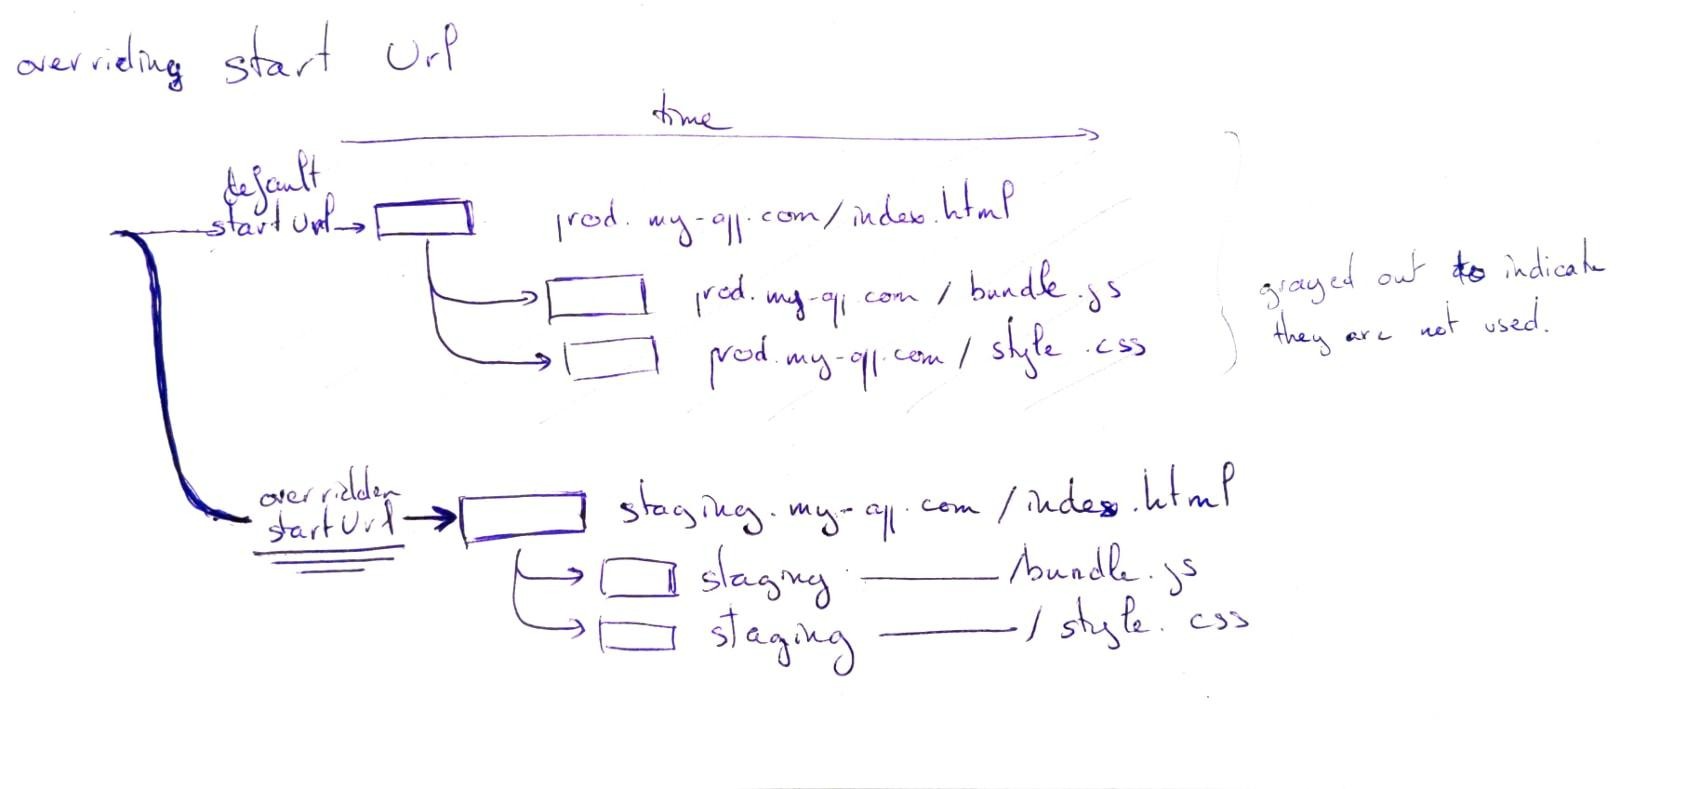 overriding start Url
time
default
start Url
prod.my-app.com/index.html
prod.my-app.com/bundle.js
prod.my-app.com/style.css
grayed out to indicate
they are not used.
overridden
startUrl
staging.my-app.com/index.html
staging ——— /bundle.js
staging ——— /style.css